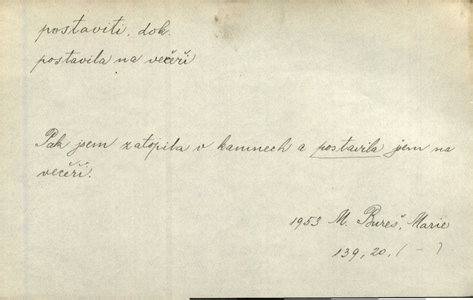 postaviti, dok.
postavila na večeři
Pak jsem zatopila v kamnech a postavila jsem na
večeři.
1953 M. Bureš, Marie
139, 20, ( - )